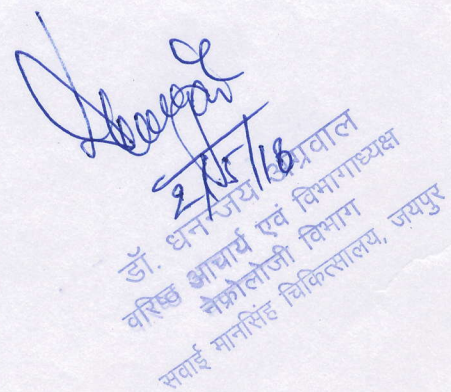 2/5/18
डॉ. धनन्जय अग्रवाल
वरिष्ठ आचार्य एवं विभागाध्यक्ष
नेफ्रोलोजी विभाग
सवाई मानसिंह चिकित्सालय, जयपुर